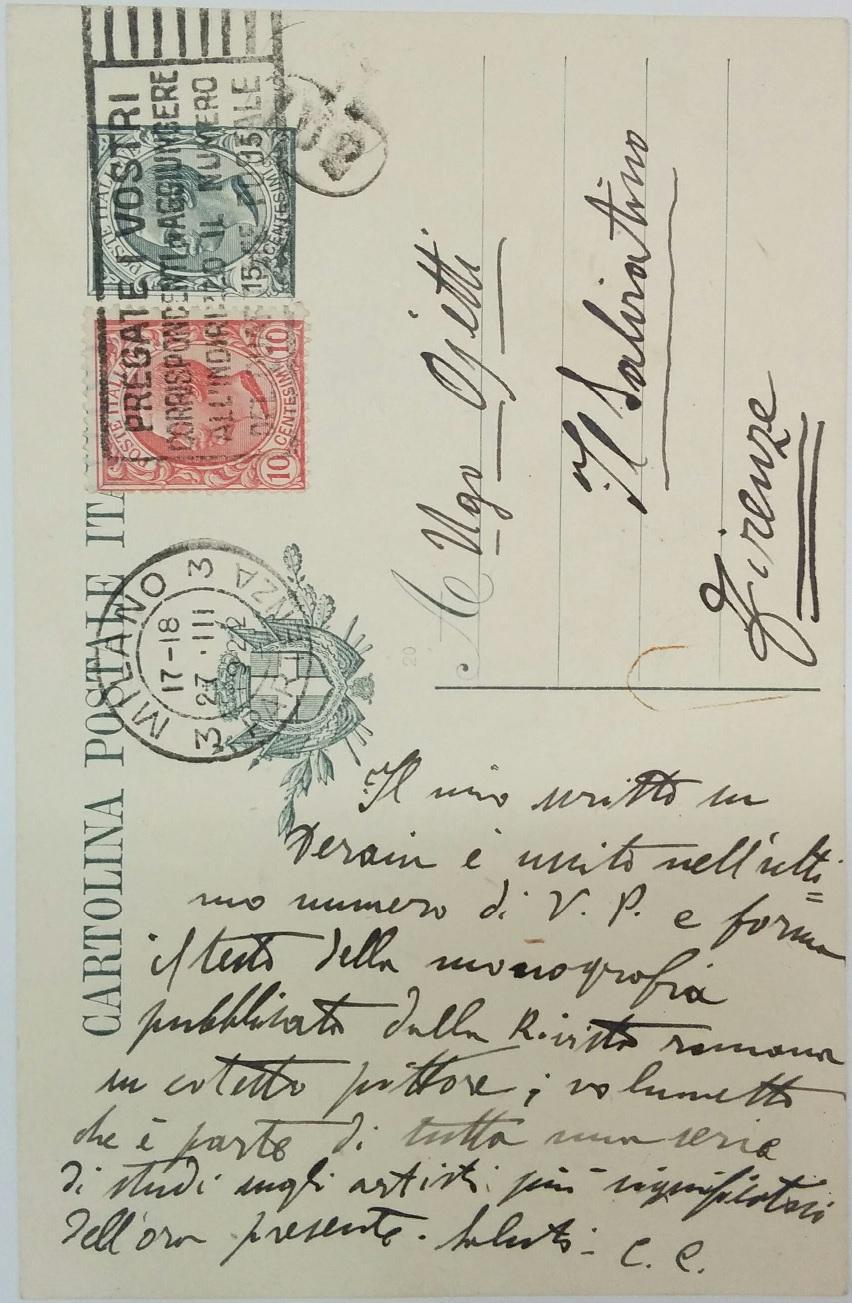 CARTOLINA POSTALE ITA
PREGATE I VOSTRI
CORRISPONDENTI D'AGGIUNGERE
ALL'INDIRIZZO IL NUMERO
POSTE ITALIANE
15 CENTESIMI 15
POSTE ITALIANE
10 CENTESIMI 10
3 MILANO 3
17-18
27 III
922
PARTENZA
20
A Ugo Ojetti
Il Salviatino
Firenze
Il mio scritto su
Derain è uscito nell'ulti=
mo numero di V. P. e forma
il testo della monografia
pubblicata dalla Rivista romana
su cotesto pittore; volumetto
che è parte di tutta una serie
di studi sugli artisti più significativi
dell'ora presente. Saluti - C. C.